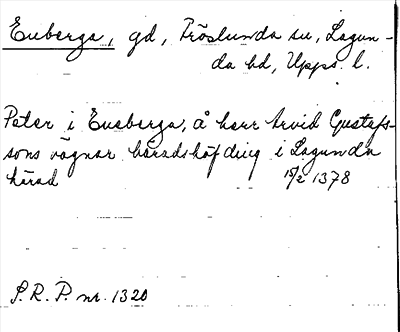 Euberga, gd, Fröslunda sn, Lagun-
da hd, Upps. l.
Peter i Eneberga, å herr Arvid Gustafs-
sons vägnar häradshöfding i Lagunda
härad 15/2 1378
S. R. P. nr. 1320